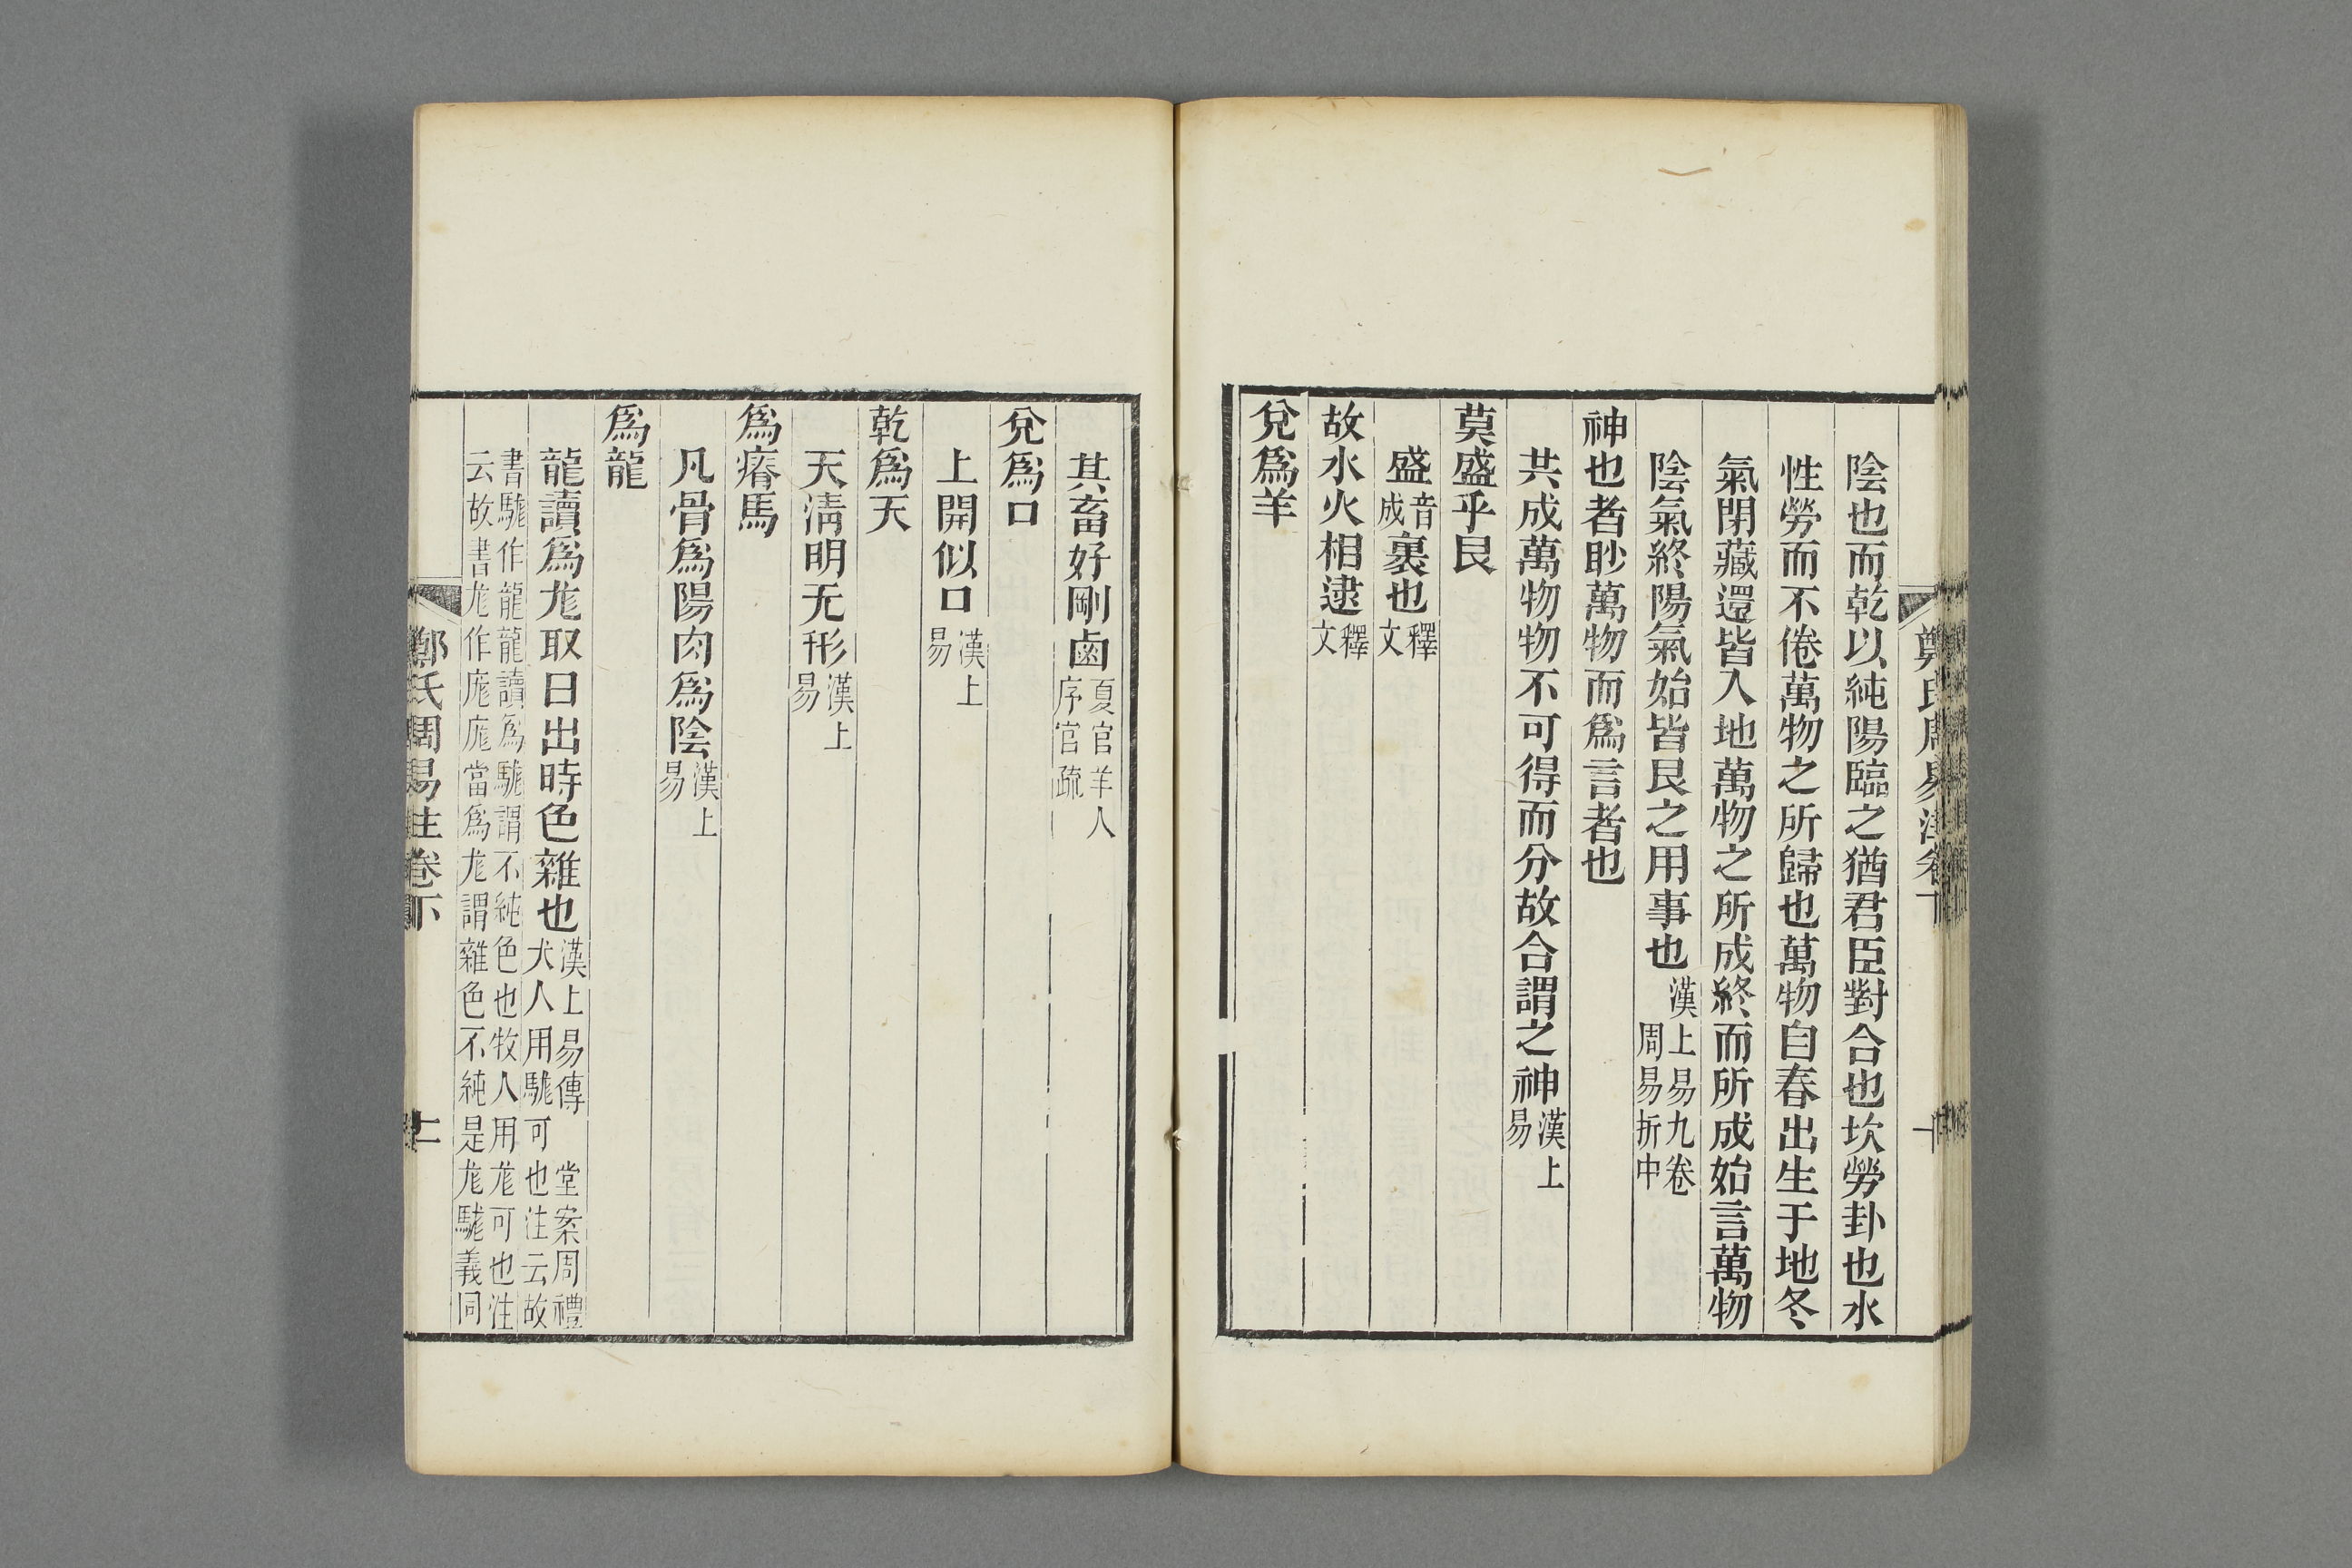 陰也而乾以純陽臨之猶君臣對合也坎勞卦也水
性勞而不倦萬物之所歸也萬物自春出生于地冬
氣閉藏還皆入地萬物之所成終而所成始言萬物
陰氣終陽氣始皆艮之用事也漢上易九卷
周易折中
神也者眇萬物而爲言者也
共成萬物物不可得而分故合謂之神漢上
易
莫盛乎艮
盛音
成裹也釋
文
故水火相逮釋
文
兌爲羊
鄭氏周易注卷下
其畜好剛鹵夏官羊人
序官疏
兌爲口
上開似口漢上
易
乾爲天
天淸明无形漢上
易
爲瘠馬
凡骨爲陽肉爲陰漢上
易
爲龍
龍讀爲尨取日出時色雜也漢上易傳 堂案周禮
犬人用駹可也注云故
書駹作龍龍讀爲駹謂不純色也牧人用尨可也注
云故書尨作庬庬當爲尨謂雜色不純是尨駹義同
鄭氏周易注卷下